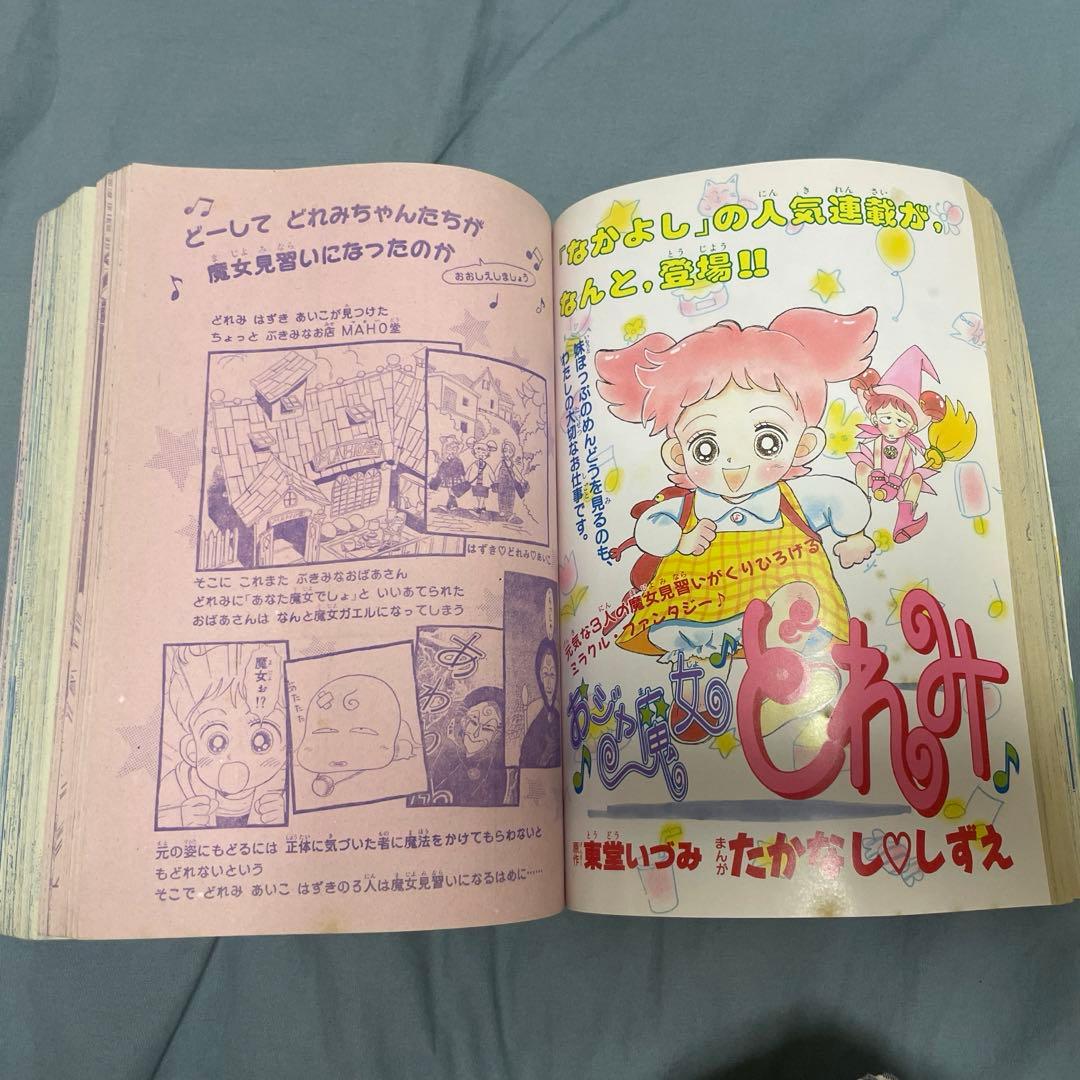 どーして どれみちゃんたちが
魔女見習いになったのか
おおしえしましょう
どれみ はずき あいこが見つけた
ちょっと ぶきみなお店 MAHO堂
MAHO堂
はずき♡どれみ♡あいこ
そこに これまた ぶきみなおばあさん
どれみに「あなた魔女でしょ」と いいあてられた
おばあさんは なんと魔女ガエルになってしまう
魔女ぉ!?
あたたた
あ
わ
元の姿にもどるには 正体に気づいた者に魔法をかけてもらわないと
もどれないという
そこで どれみ あいこ はずきの3人は魔女見習いになるはめに……
「なかよし」の人気連載が,
なんと,登場!!
妹ぽっぷのめんどうを見るのも、
わたしの大切なお仕事です。
元気な3人の魔女見習いがくりひろげる
ミラクル・ファンタジー♪
おジャ魔女
どれみ
原作 東堂いづみ まんが たかなし♡しずえ